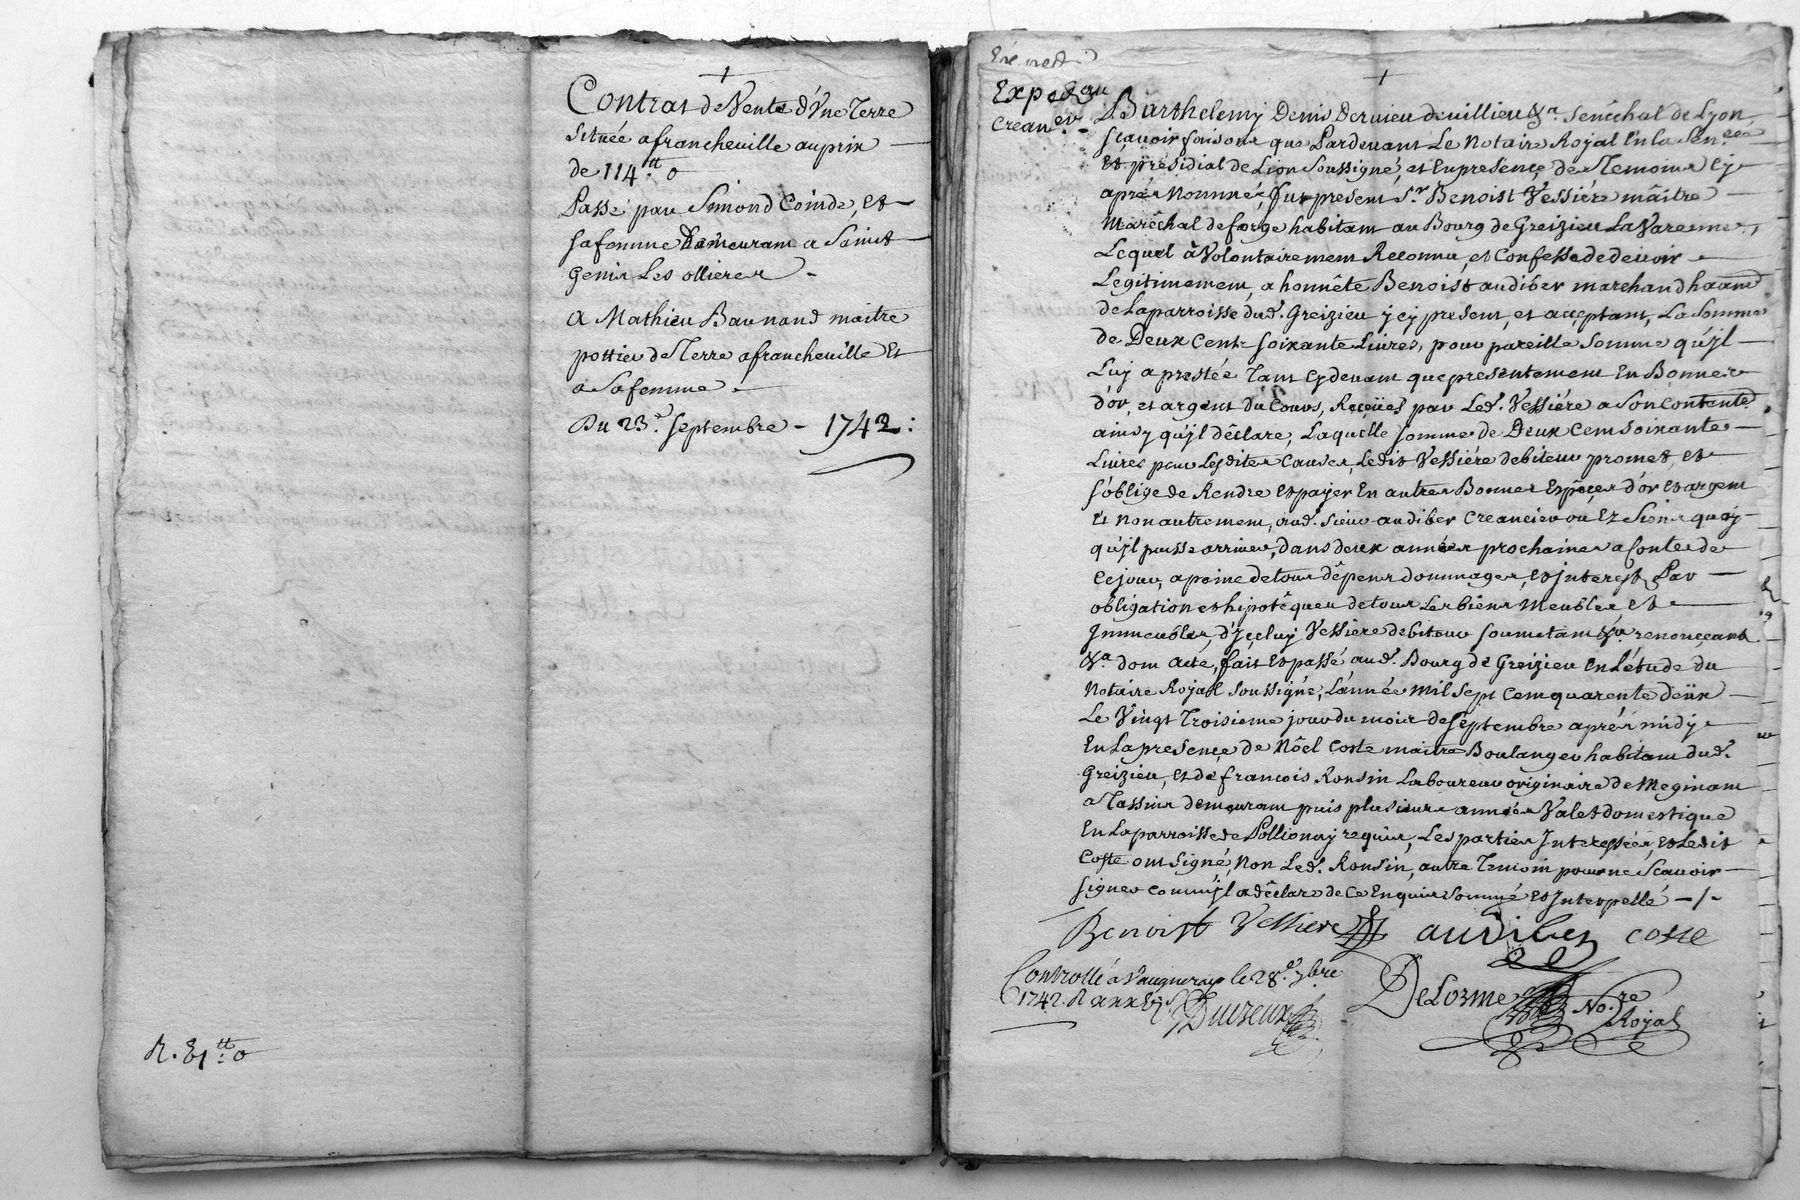 Contrat de Vente d'Vne Terre
située a francheuille au prix
de 114.tt 0
Passé par Simond Coinde, et
sa femme Demeurant a Saint
Genis Les ollieres
a Mathieu Baunand maitre
pottier de Terre a francheuille Et
a Sa femme
Du 23.e septembre - 1742:
R. 1.tt 0
Exped au
crean.er
Barthelemy Denis Dervieu de villieu &a. senéchal de Lyon
scavoir faisons que Pardevant Le Notaire Royal En la Sen.ceé
Et présidial de Lion Soussigné, et En presençe des Temoins Cy
aprés Nommés, fut present S.r Benoist Vessiére mâitre
Maréchal de forge habitant au Bourg de Greizieu LaVarenne,
Lequel à Volontairement Reconnu, et Confessé de deuoir
Legitimement, a honnête Benoist audiber marchand
de Laparroisse dud. Greizieu y cy present, et acçeptant, La Somme
de Deux Cent soixante Liures, pour pareille Somme qu'jl
Luy a prestée Tant cy deuant que presentement En Bonne
d'or, et argent du Cours, Reçeües par Led. Vessiére a Son contentem.t
ainsy qu'jl déclare, Laquelle somme de Deux Cent soixante
Liures pour Lesdites Causes, Ledit Vessiére debiteur promet, et
s'oblige de Rendre et payer En autres Bonnes Espéçes d'or et argent
Et Non autrement, aud. Sieur audiber creancier ou Ez Siens quoy
qu'jl puisse arriuer, dans deux années prochaines a Conter de
Cejour, a peine de tous dépens dommages, et jnterest, Par
obligation et hipotéque de tous Les biens Meubles et
Jmmeubles, d'Jçeluy Vessiere debiteur soumetant &a. renonçeant
&a. dont acte, fait et passé aud. Bourg de Greizieu En L'étude du
Notaire Royal Soussigné, L'année mil sept Cent quarente deux
Le Vingt Troisieme jour du mois de septembre aprés midy
En La presençe de Nöel Coste maitre Boulanger habitant dud.
Greizieu, et de francois Ronsin Laboureur originaire de Meginant
a Tassins demeurant puis plusieurs années Valet domestique
En La parroisse de Pollionay requis, Les parties Interessées, et Ledit
Coste ont signé, Non Led. Ronsin, autre Temoin pour ne Scauoir
signer comm'jl a déclaré de Ce Enquis Sommé et Interpellé -/-
Benoist Vessiere audiber coste
Controllé à Vaugneray le 28.e 7bre
1742. R
DeLorme No.re
Royal